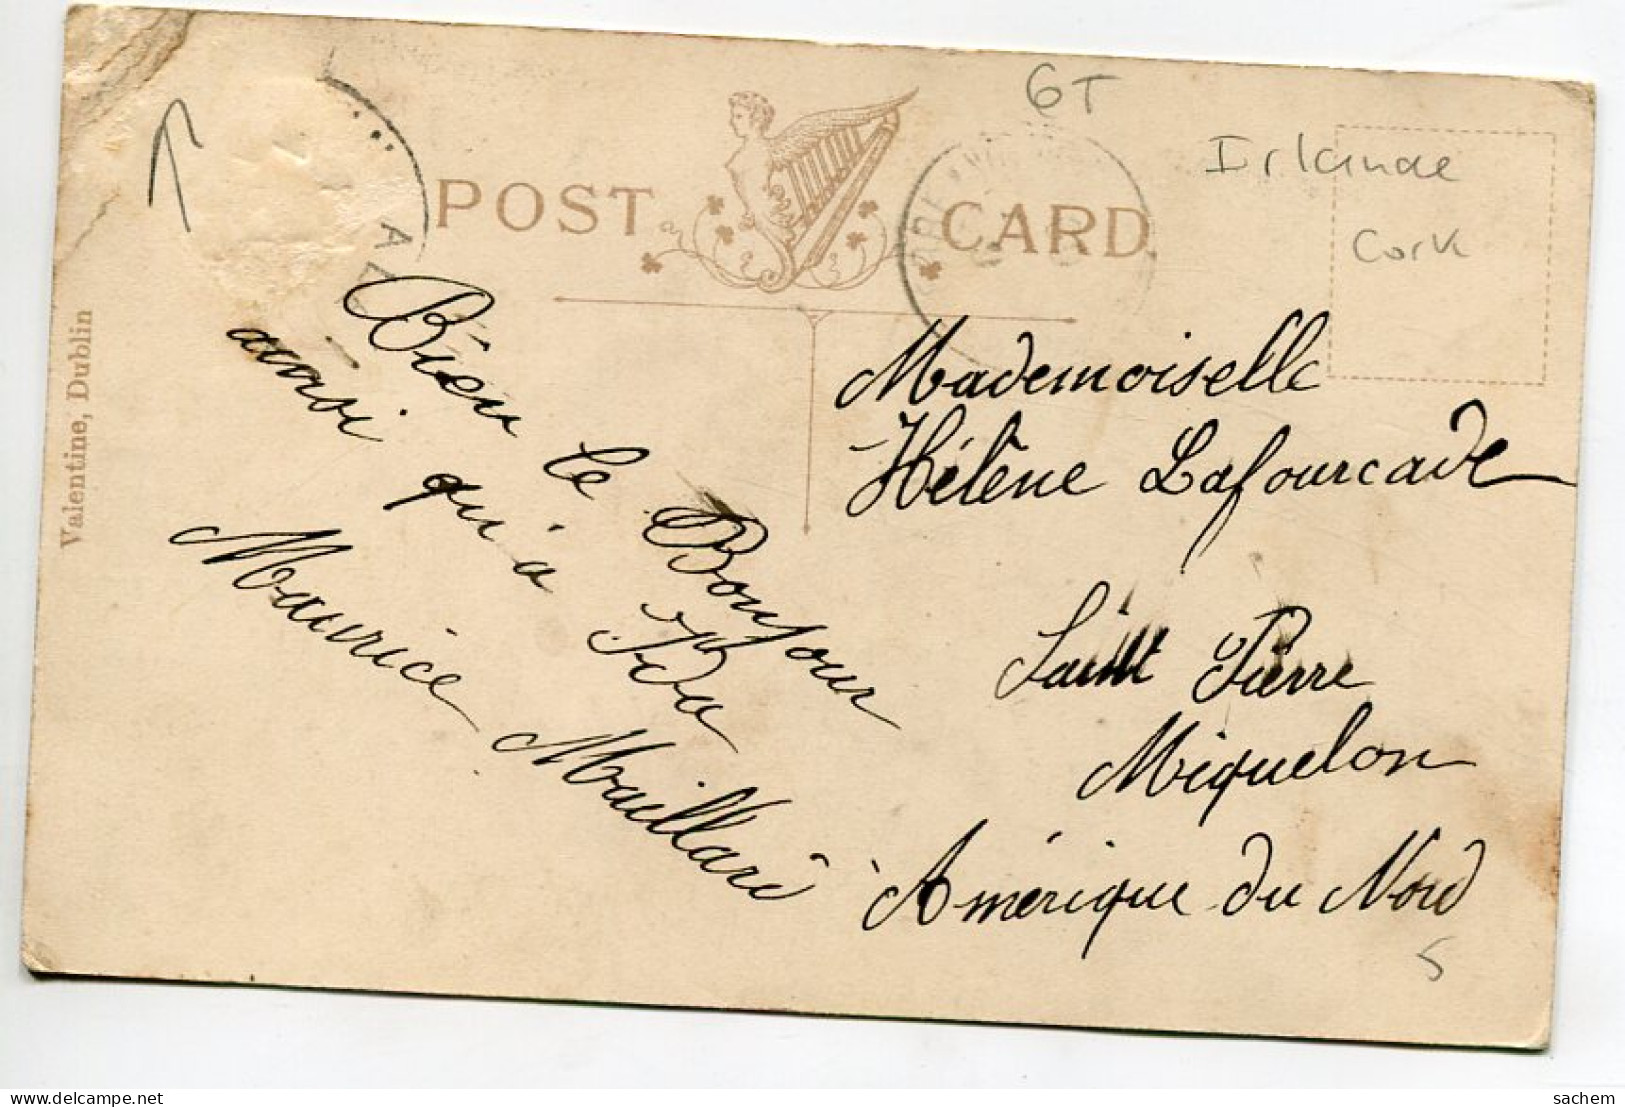 6T
Irlande
Cork
POST CARD
Valentine, Dublin
Bien le Bonjour
ainsi qu'a Ida
Maurice Maillard
Mademoiselle
Hélène Lafourcade
Saint Pierre
Miquelon
Amérique du Nord
5
delcampe.net
sachem